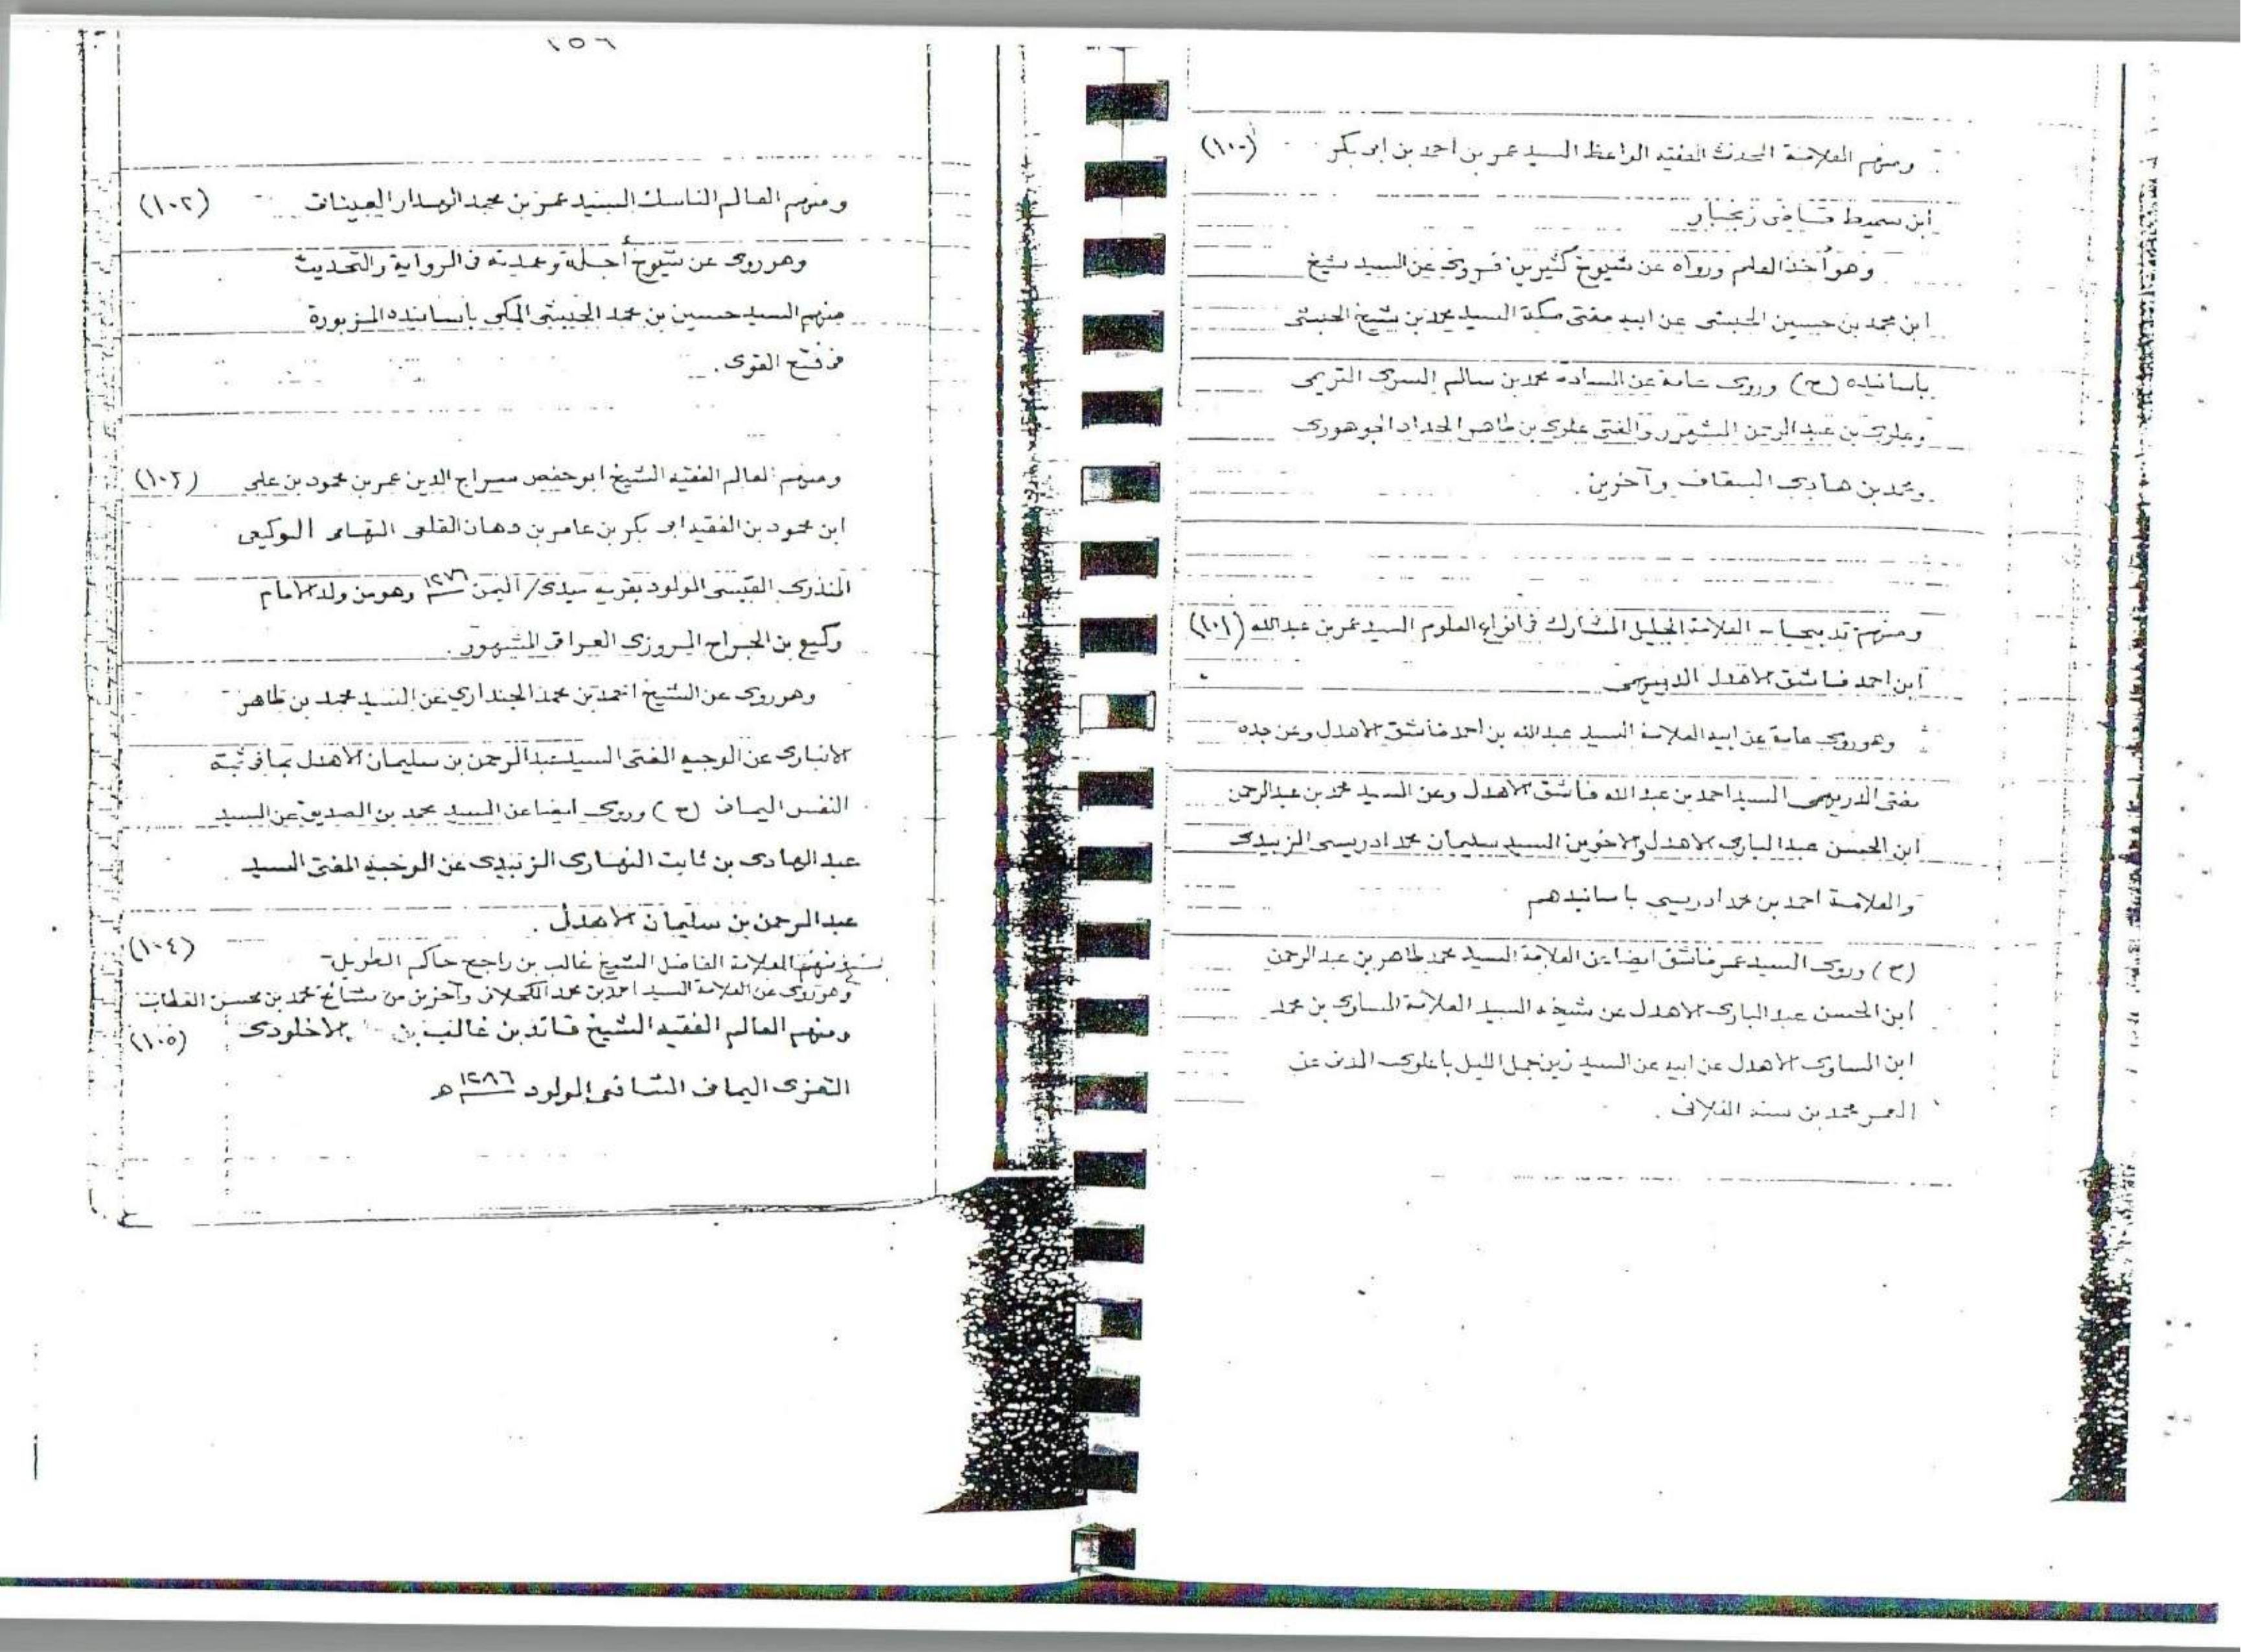 ومنهم العلامة المحدث الفقيه الواعظ السيد عمر بن احمد بن ابى بكر (١٠٠)
ابن سميط قاضى زنجبار
وهو أخذ العلم ورواه عن شيوخ كثيرين فروى عن السيد شيخ
ابن محمد بن حسين الحبشى عن ابيه مفتى مكة السيد محمد بن شيخ الحبشى
بأسانيده (ح) وروى عامة عن السادة محمد بن سالم السرى التريمى
وعلوى بن عبد الرحمن المشهور والمفتى علوى بن طاهر الحداد الجوهورى
ومحمد بن هادى السقاف وآخرين .
ومنهم تدبيجا العلامة الجليل المشارك فى انواع العلوم السيد عمر بن عبد الله (١٠١)
ابن احمد فاشق الأهدل الدريهمى
وهو روى عامة عن ابيه العلامة السيد عبد الله بن احمد فاشق الأهدل وعن جده
مفتى الدريهمى السيد احمد بن عبد الله فاشق الأهدل وعن السيد محمد بن عبد الرحمن
ابن الحسن عبد البارى الأهدل والأخوين السيد سليمان محمد ادريسى الزبيدى
والعلامة احمد بن محمد ادريسى بأسانيدهم
(ح) وروى السيد عمر فاشق ايضا عن العلامة السيد محمد طاهر بن عبد الرحمن
ابن الحسن عبد البارى الأهدل عن شيخه السيد العلامة المساوى بن محمد
ابن المساوى الأهدل عن ابيه عن السيد زين جمل الليل باعلوى المدنى عن
المعمر محمد بن سنه الفلانى .
١٥٦
ومنهم العالم الناسك السيد عمر بن محمد الهدار العينات (١٠٢)
وهو روى عن شيوخ أجلة وعمدته فى الرواية والتحديث
منهم السيد حسين بن محمد الحبشى المكى بأسانيده المزبورة
فى فتح القوى .
ومنهم العالم الفقيه الشيخ ابو حفص سراج الدين عمر بن محمود بن على (١٠٣)
ابن محمود بن الفقيه ابى بكر بن عامر بن دهان القلعى التهامى الوكيعى
المنذرى القيسى المولود بقرية سيدى/ اليمن ١٢٧٦ وهو من ولد الامام
وكيع بن الجراح المروزى العراقى المشهور .
وهو روى عن الشيخ احمد بن محمد الجندارى عن السيد محمد بن طاهر
الأنبارى عن الوجيه المفتى السيد عبد الرحمن بن سليمان الأهدل بما فى ثبته
النفس اليمانى (ح) وروى ايضا عن السيد محمد بن الصديق عن السيد
عبد الهادى بن ثابت النهارى الزبيدى عن الوجيه المفتى السيد
عبد الرحمن بن سليمان الأهدل .
ومنهم العلامة الفاضل الشيخ غالب بن راجح حاكم الطويل (١٠٤)
وهو روى عن العلامة السيد احمد بن محمد الكحلانى وآخرين من مشائخ محمد بن محسن القطاب
ومنهم العالم الفقيه الشيخ قائد بن غالب بن الاخلودى (١٠٥)
التعزى اليمانى الشافعى المولود ١٢٨٦ ھ